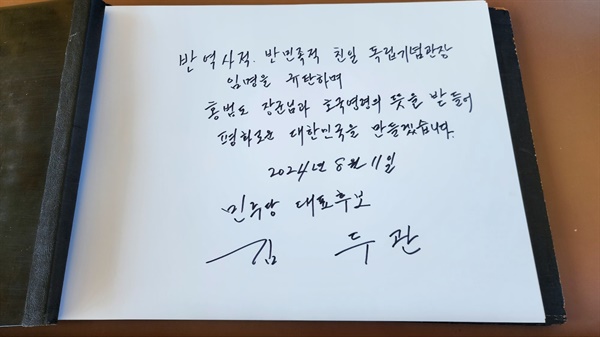 반역사적. 반민족적 친일 독립기념관장
임명을 규탄하며
홍범도 장군님과 호국영령의 뜻을 받들어
평화로운 대한민국을 만들겠습니다.
2024년 8월 11일
민주당 대표후보
김 두 관